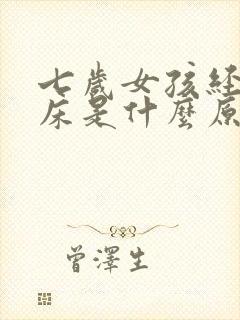 七歲女孩經
床是什麼原
曾澤生